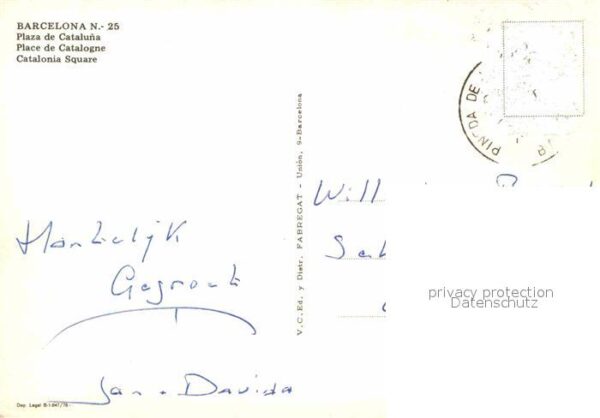 BARCELONA N.- 25
Plaza de Cataluña
Place de Catalogne
Catalonia Square
Hartelijk
Gegroet
Jan + Davida
V.C. Ed. y Distr. FABREGAT - Unión, 9-Barcelona
PINEDA DE
Will
privacy protection
Datenschutz